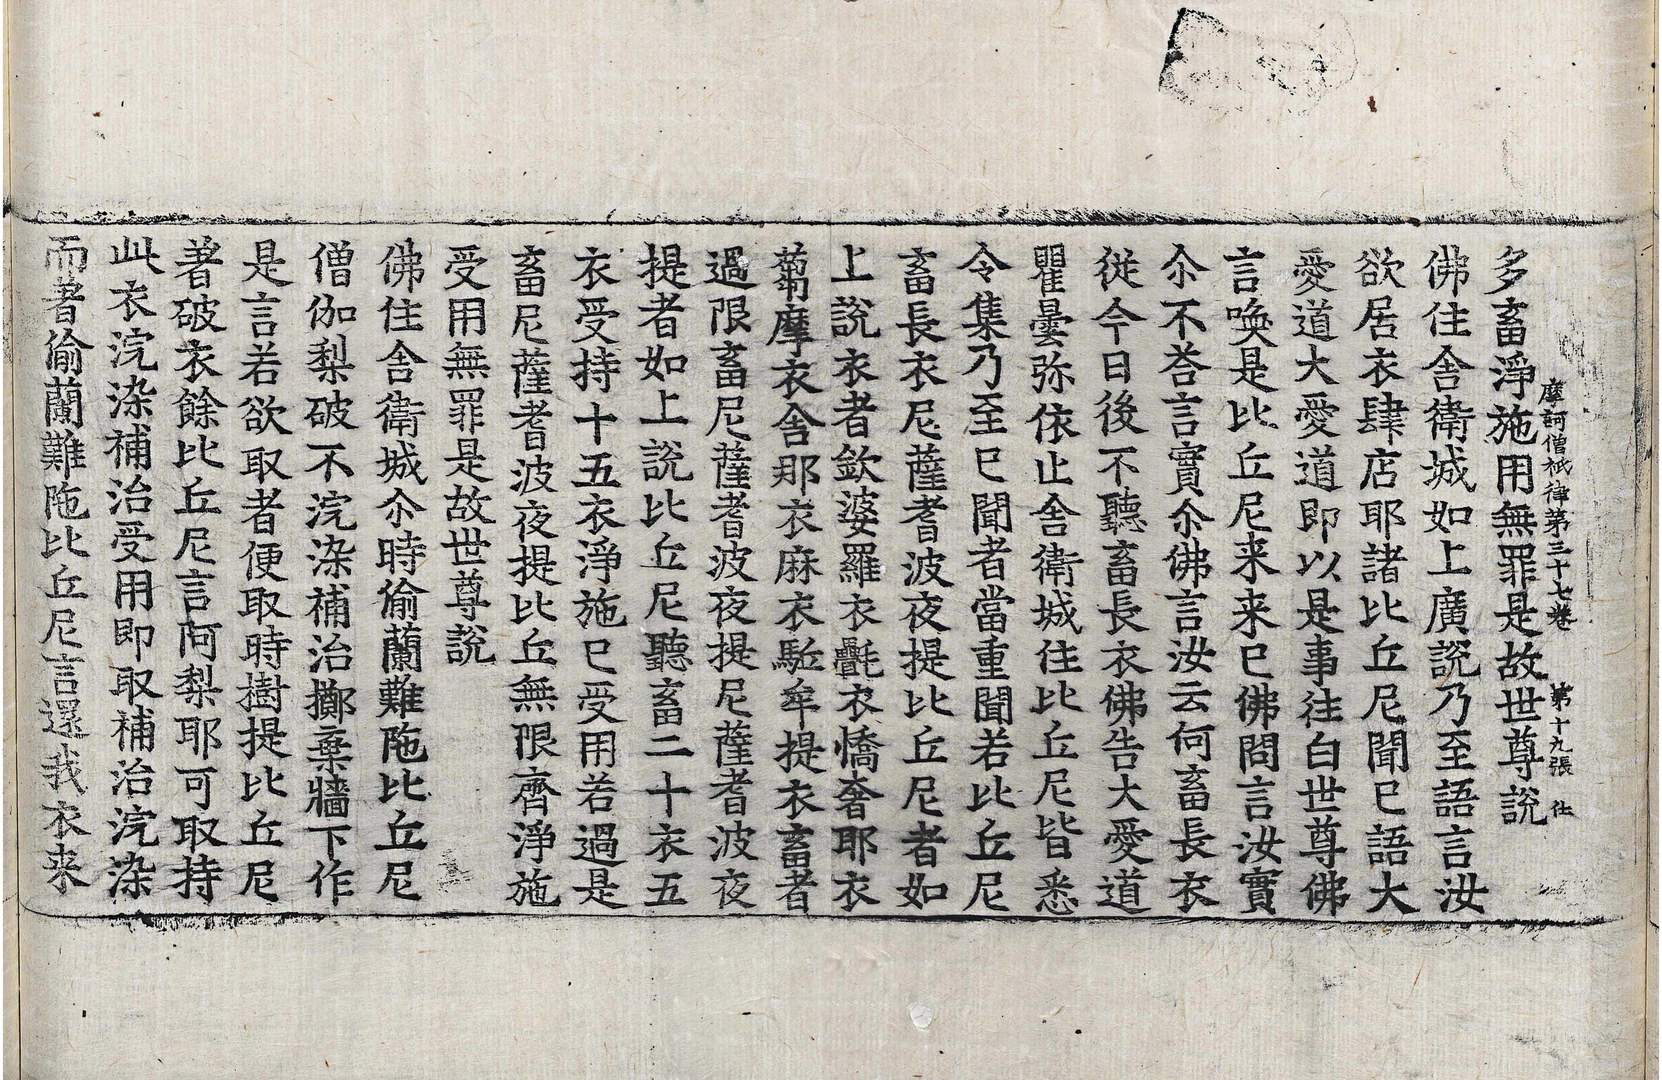 摩訶僧祇律第三十七卷 第十九張 仕
多畜淨施用無罪是故世尊說
佛住舍衛城如上廣說乃至語言汝
欲居衣肆店耶諸比丘尼聞已語大
愛道大愛道即以是事往白世尊佛
言喚是比丘尼来来已佛問言汝實
尒不荅言實尒佛言汝云何畜長衣
從今日後不聽畜長衣佛告大愛道
瞿曇弥依止舍衛城住比丘尼皆悉
令集乃至已聞者當重聞若比丘尼
畜長衣尼薩耆波夜提比丘尼者如
上說衣者欽婆羅衣㲲衣憍奢耶衣
蒭摩衣舍那衣麻衣駏牟提衣畜者
過限畜尼薩耆波夜提尼薩耆波夜
提者如上說比丘尼聽畜二十衣五
衣受持十五衣淨施已受用若過是
畜尼薩耆波夜提比丘無限齊淨施
受用無罪是故世尊說
佛住舍衛城尒時偷蘭難陁比丘尼
僧伽梨破不浣染補治擲棄牆下作
是言若欲取者便取時樹提比丘尼
著破衣餘比丘尼言阿梨耶可取持
此衣浣染補治受用即取補治浣染
而著偷蘭難陁比丘尼言還我衣来